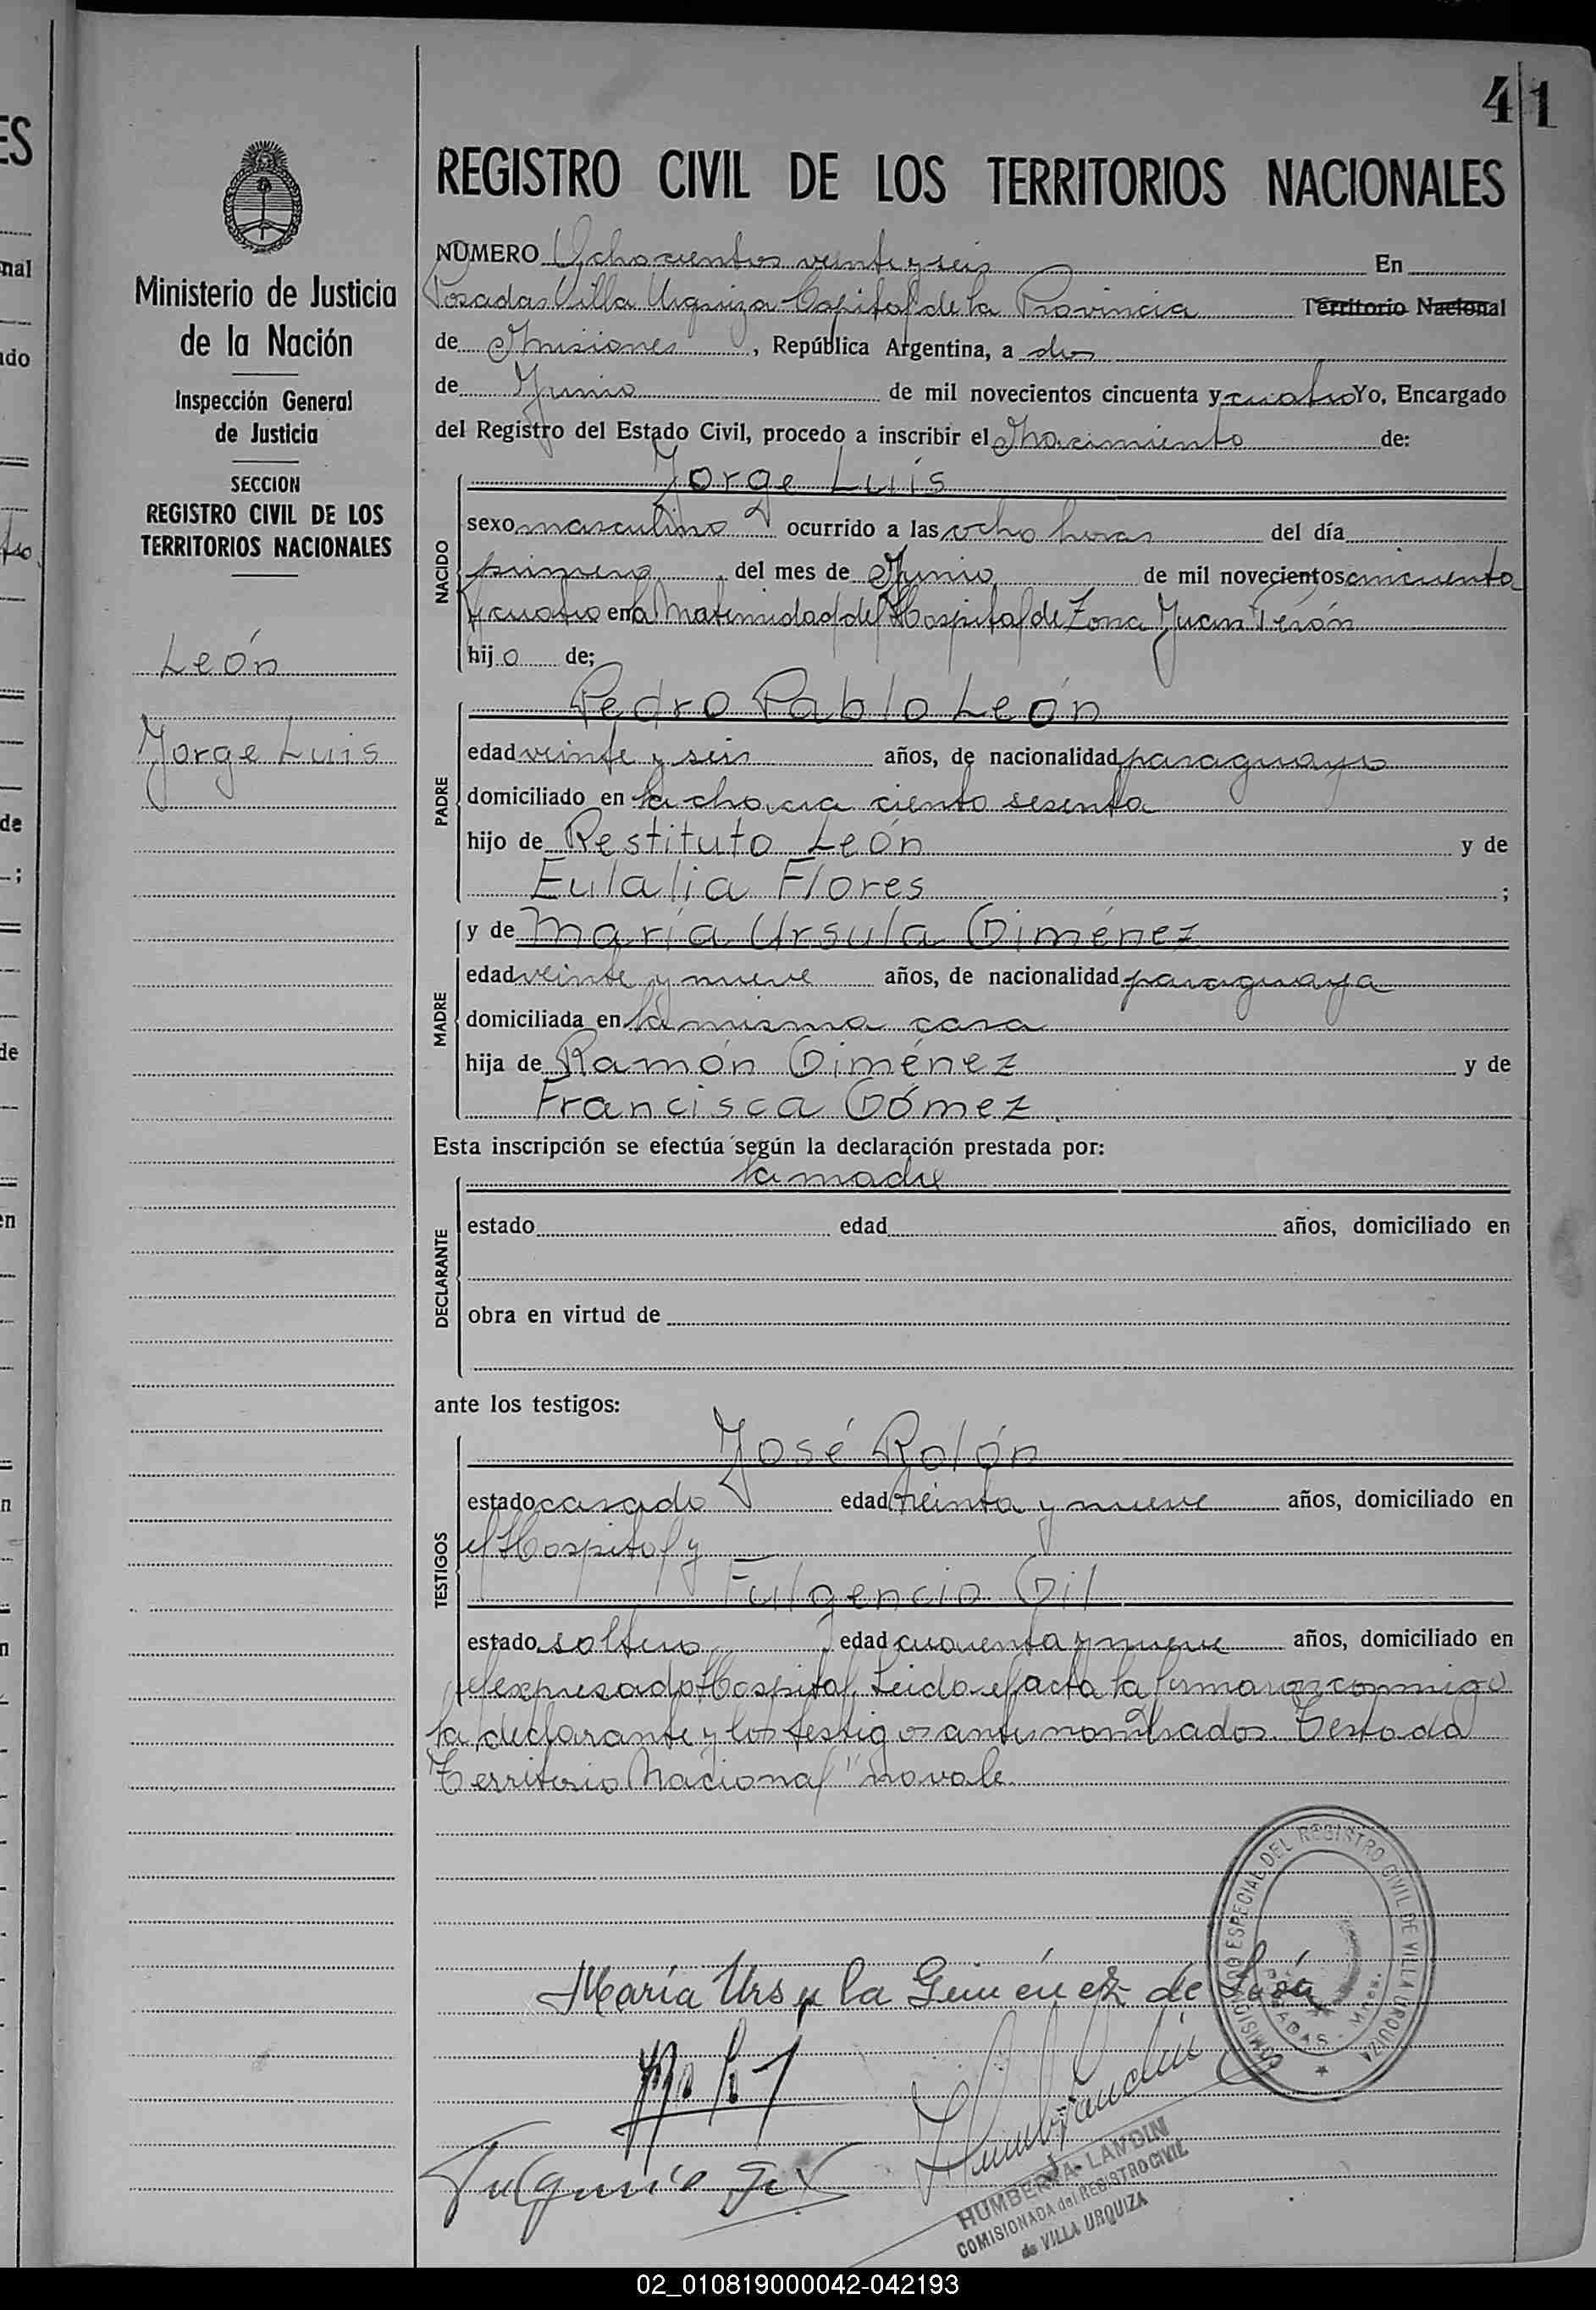 41
REGISTRO CIVIL DE LOS TERRITORIOS NACIONALES
Ministerio de Justicia
de la Nación
Inspección General
de Justicia
SECCION
REGISTRO CIVIL DE LOS
TERRITORIOS NACIONALES
León
Jorge Luis
NUMERO Ochocientos veinte y seis En
Posadas Villa Urquiza Capital de la Provincia Territorio Nacional
de Misiones, República Argentina, a dos
de Junio de mil novecientos cincuenta y cuatro Yo, Encargado
del Registro del Estado Civil, procedo a inscribir el Nacimiento de:
NACIDO
Jorge Luis
sexo masculino ocurrido a las ocho horas del día
primero, del mes de Junio de mil novecientos cincuenta
y cuatro en la Maternidad del Hospital de Zona Juan Perón
hijo de;
PADRE
Pedro Pablo León
edad veinte y seis años, de nacionalidad paraguayo
domiciliado en la chacra ciento sesenta
hijo de Restituto León y de
Eulalia Flores ;
MADRE
y de María Ursula Giménez
edad veinte y nueve años, de nacionalidad paraguaya
domiciliada en la misma casa
hija de Ramón Giménez y de
Francisca Gómez.
Esta inscripción se efectúa según la declaración prestada por:
DECLARANTE
la madre
estado edad años, domiciliado en
obra en virtud de
ante los testigos:
TESTIGOS
José Rolón
estado casado edad treinta y nueve años, domiciliado en
el Hospital y
Fulgencio Gil
estado soltero edad cuarenta y nueve años, domiciliado en
el expresado Hospital. Leida el acta la firmaron conmigo
la declarante y los testigos antes nombrados. Testado
"Territorio Nacional" no vale.
María Ursula Geménez de León
Fulgencio Gil
COMISIONADO ESPECIAL DEL REGISTRO CIVIL DE VILLA URQUIZA
POSADAS - MNES.
HUMBERTA LANDINI
COMISIONADA del REGISTRO CIVIL
de VILLA URQUIZA
02_010819000042-042193